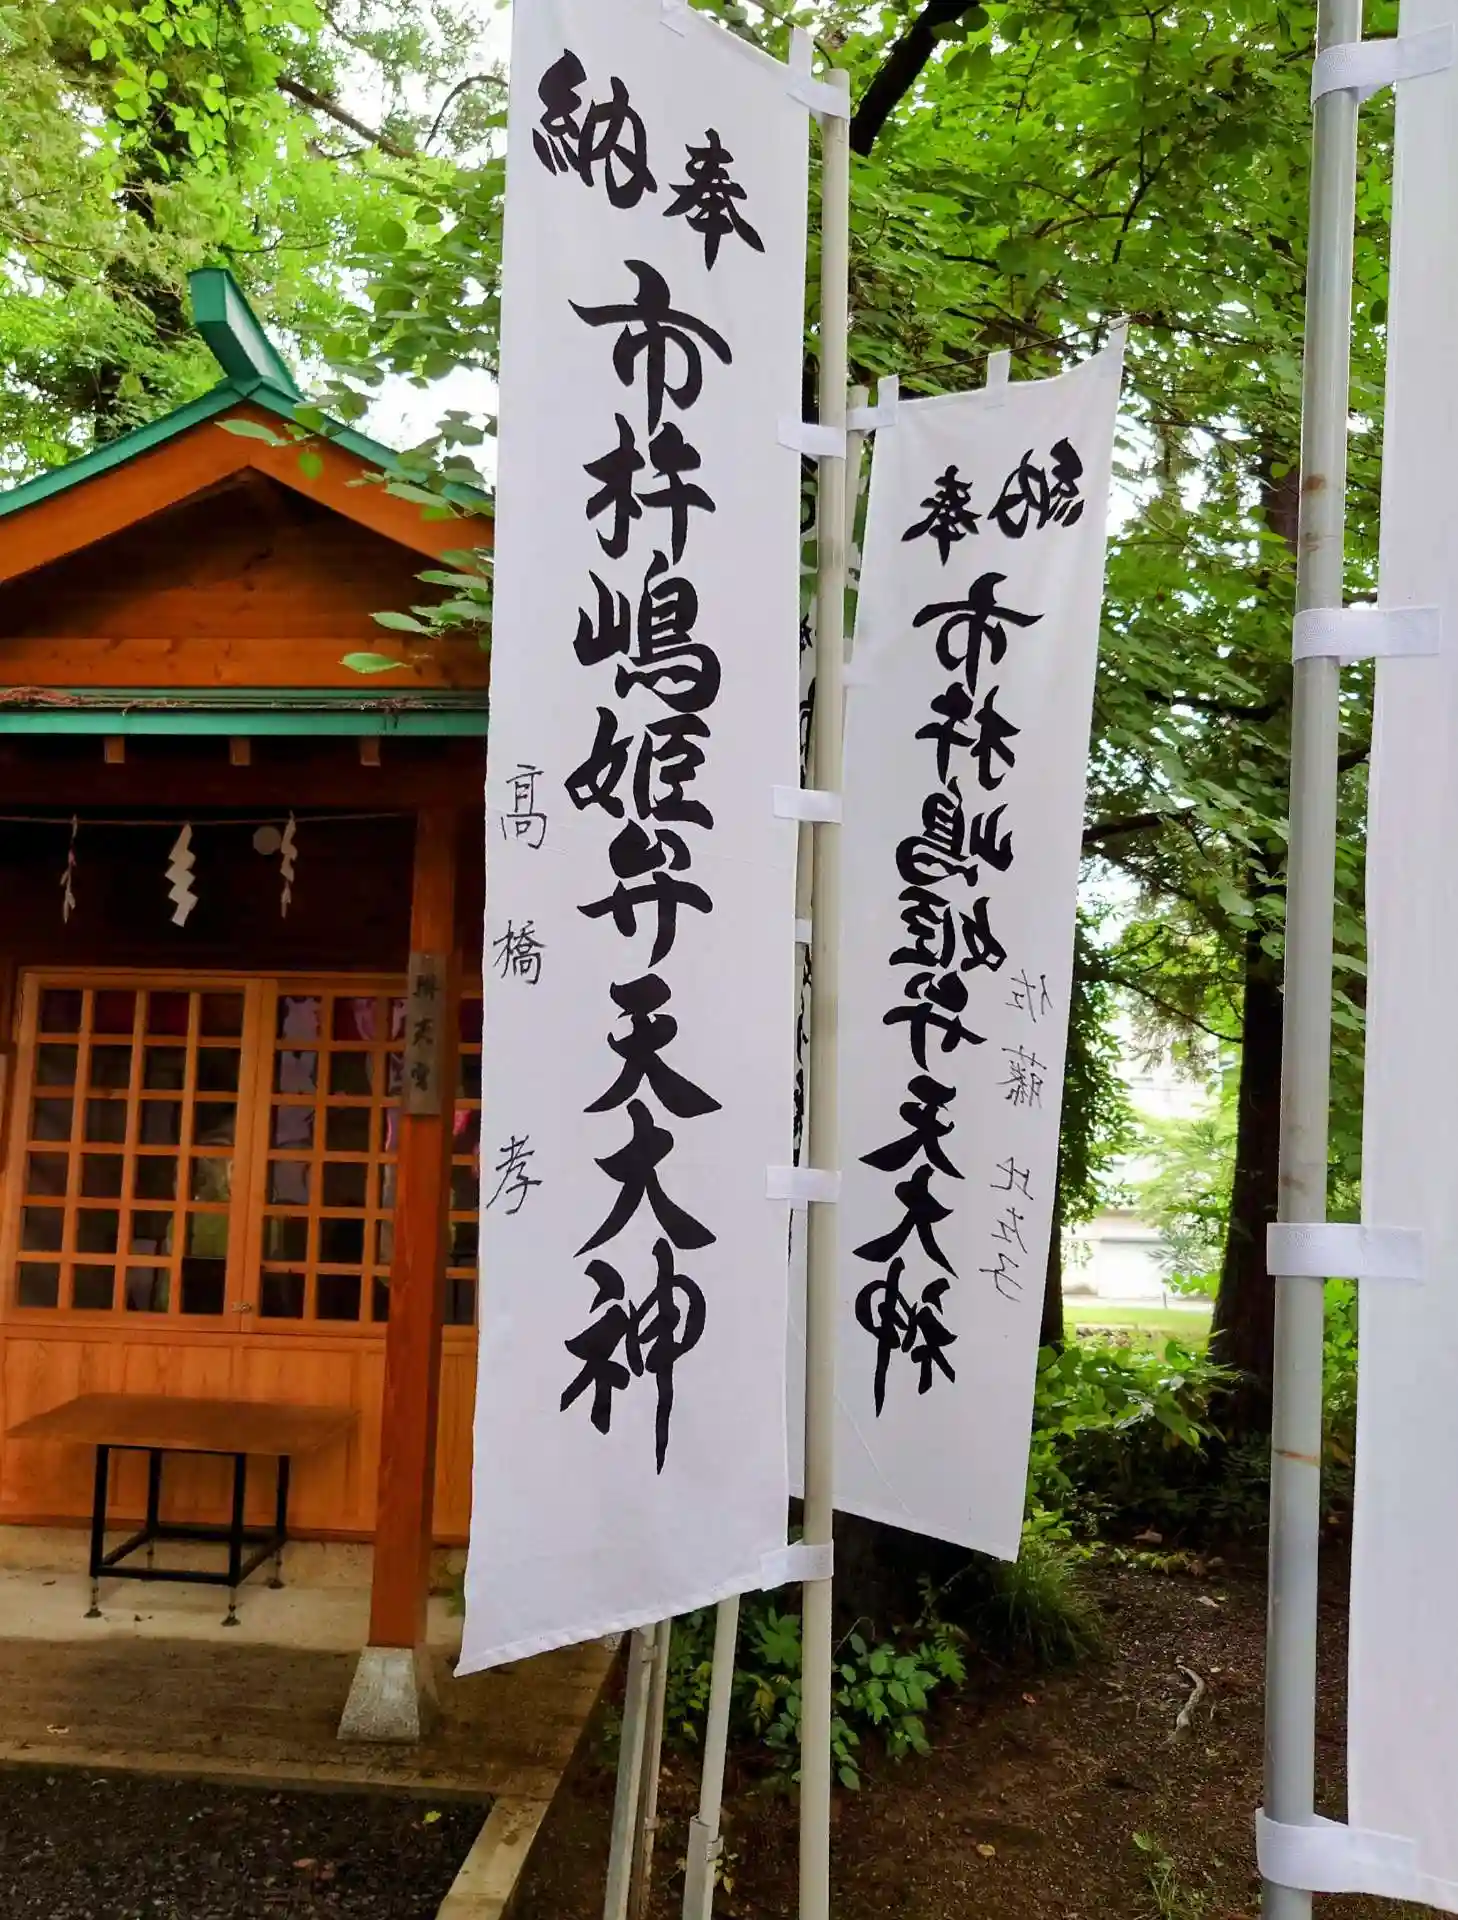 奉納
市杵嶋姫弁天大神
高橋孝
奉納
市杵嶋姫弁天大神
佐藤比左子